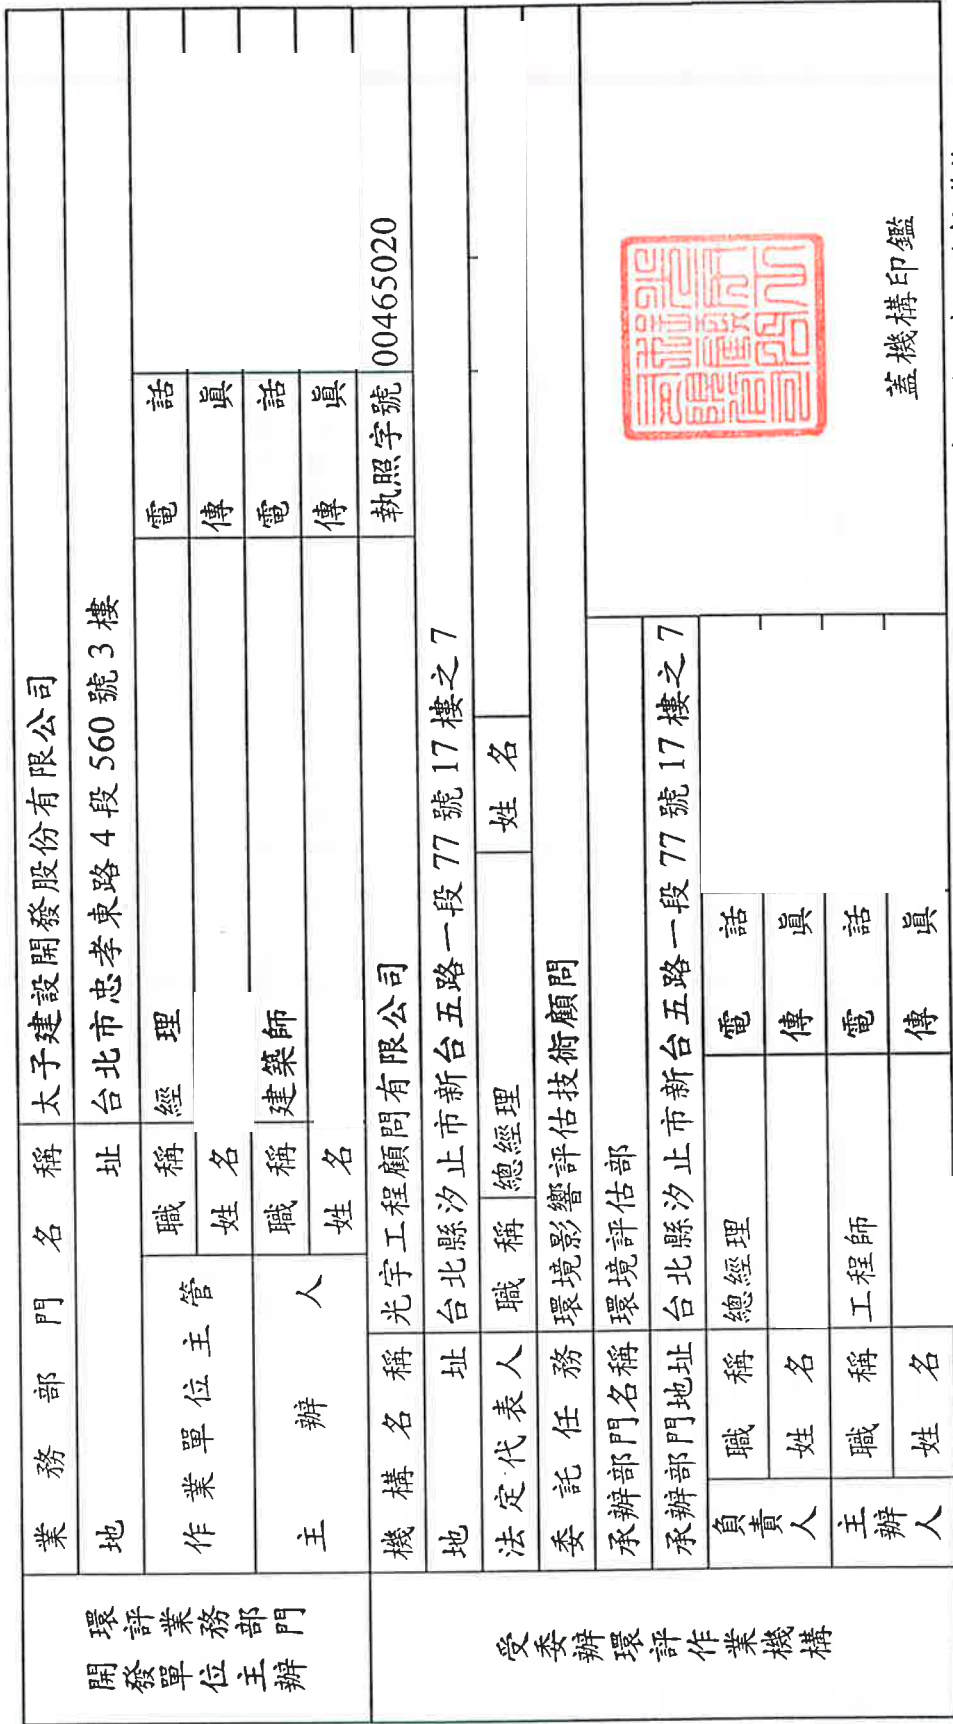 開發單位主辦
環評業務部門
業務部門名稱 太子建設開發股份有限公司
地址 台北市忠孝東路4段560號3樓
作業單位主管 職稱 經理 電話
姓名 傳眞
主辦人 職稱 建築師 電話
姓名 傳眞
受委辦環評作業機構
機構名稱 光宇工程顧問有限公司 執照字號 00465020
地址 台北縣汐止市新台五路一段77號17樓之7
法定代表人 職稱 總經理 姓名
委託任務 環境影響評估技術顧問
承辦部門名稱 環境評估部
承辦部門地址 台北縣汐止市新台五路一段77號17樓之7
負責人 職稱 總經理 電話
姓名 傳眞
主辦人 職稱 工程師 電話
姓名 傳眞
蓋機構印鑑